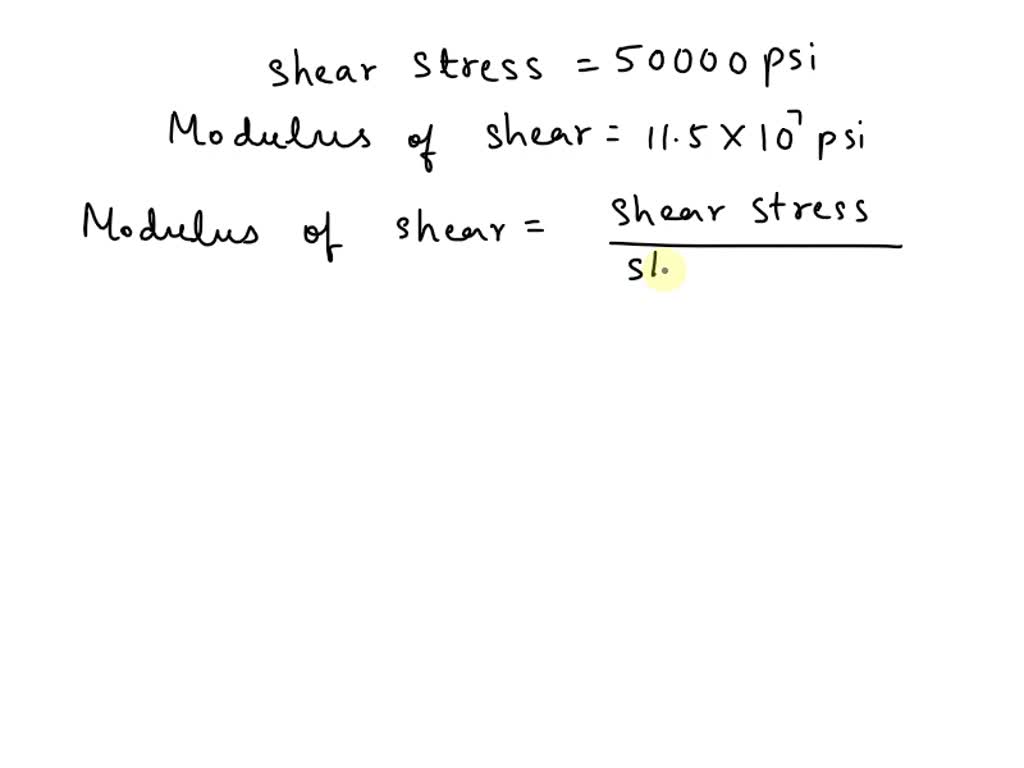 shear stress = 50000 psi
Modulus of shear = 11.5 × 10⁷ psi
Modulus of shear = shear stress